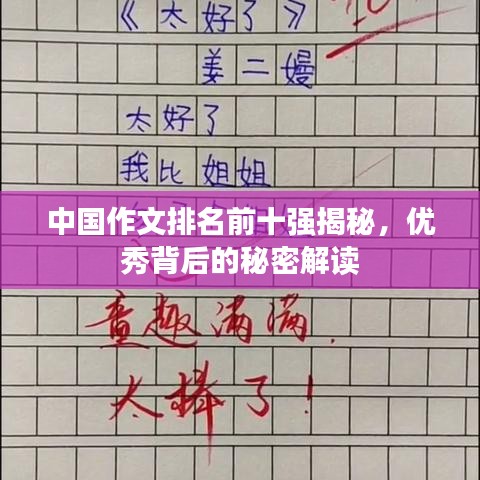 《太好了》
姜二嫚
太好了
我比姐姐
中国作文排名前十强揭秘，优
秀背后的秘密解读
童趣满满.
太棒了！